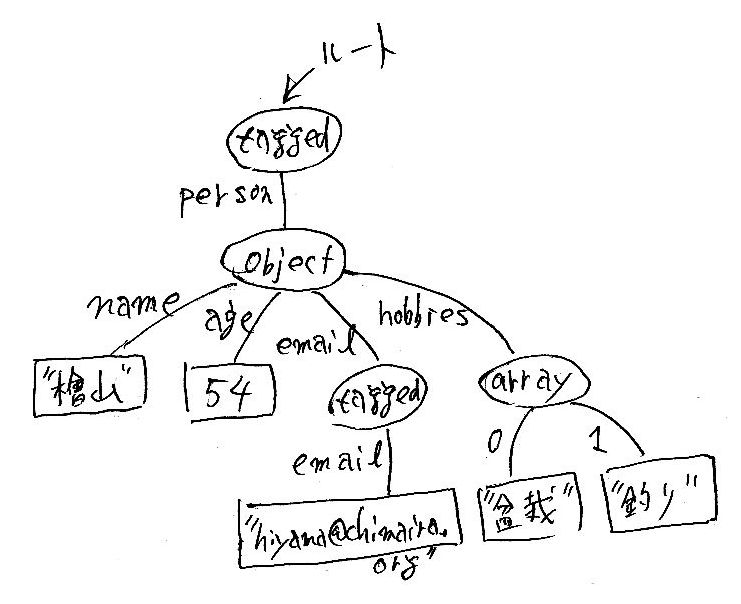 ルート
tagged
person
object
name
age
email
hobbies
"檜山"
54
tagged
array
email
0
1
"hiyama@chimaira.
org"
"盆栽"
"釣り"